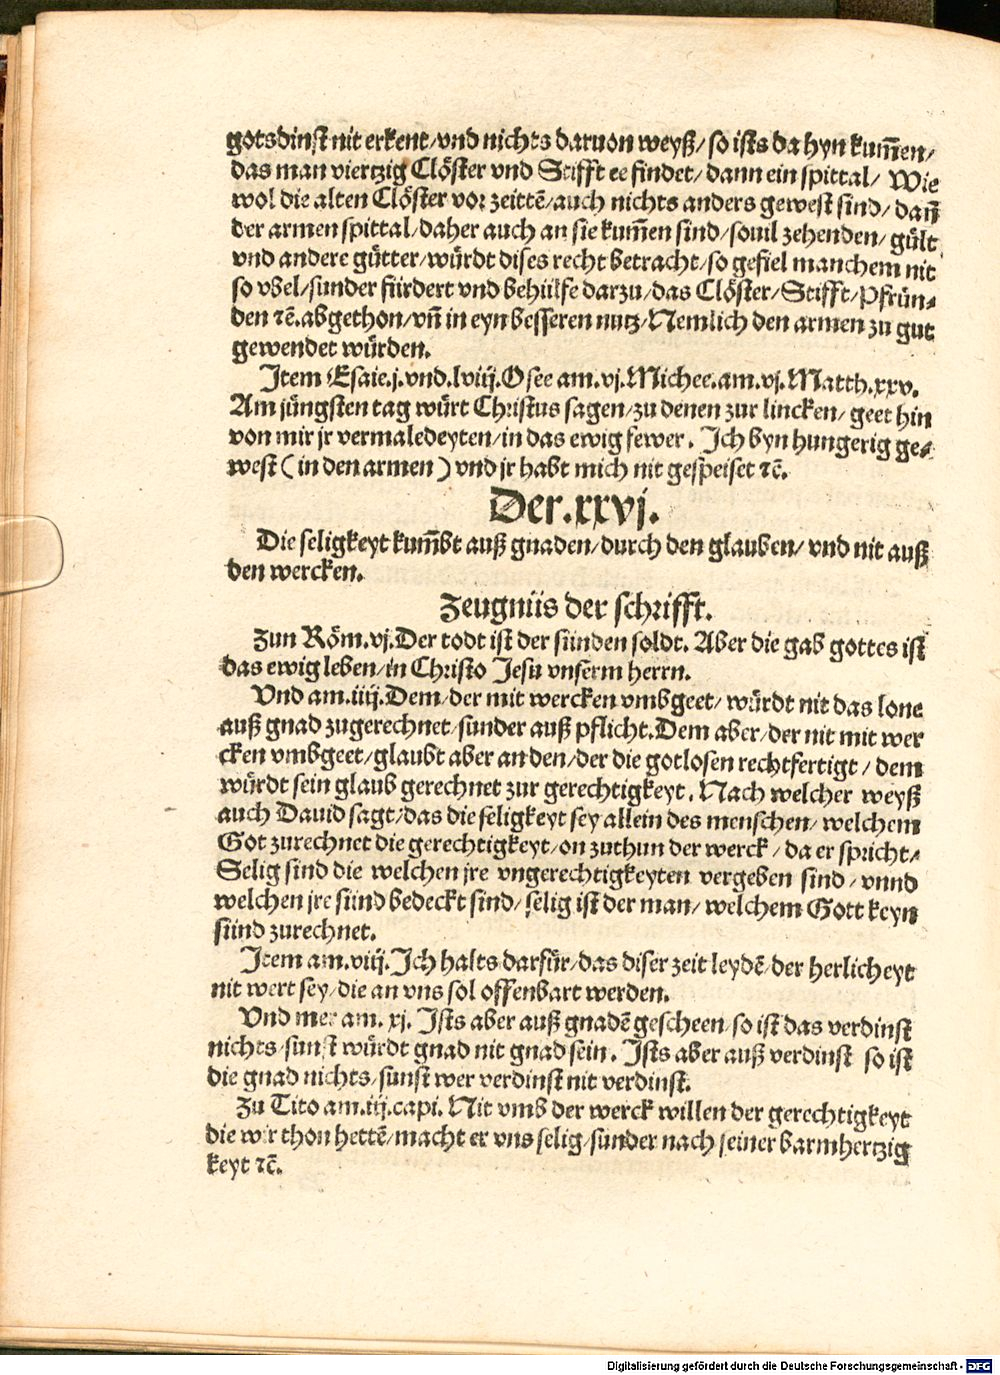 gotsdinst nit erkent/vnd nichts daruon weyß/ so ists da hyn kum̄en/
das man viertzig Clöster vnd Stifft ee findet/ dann ein spittal/ Wie
wol die alten Clöster vor zeittē/auch nichts anders gewest sind/ dan̄
der armen spittal/daher auch an sie kum̄en sind/souil zehenden/ gült
vnd andere gütter/würdt dises recht betracht/so gefiel manchem nit
so vbel/sunder fürdert vnd behülfe darzu/das Clöster/Stifft/Pfrün-
den ꝛc̄.abgethon/vn̄ in eyn besseren nutz/Nemlich den armen zu gut
gewendet würden.
Item Esaie.j.vnd.lviij.Osee am.vj.Michee.am.vj.Matth.xxv.
Am jüngsten tag würt Christus sagen/zu denen zur lincken/ geet hin
von mir jr vermaledeyten/in das ewig fewer. Ich byn hungerig ge-
west (in den armen) vnd jr habt mich nit gespeiset ꝛc̄.
Der.xxvj.
Die seligkeyt kum̄bt auß gnaden/durch den glauben/ vnd nit auß
den wercken.
Zeugnüs der schrifft.
Zun Röm.vj.Der todt ist der sünden soldt. Aber die gab gottes ist
das ewig leben/in Christo Jesu vnserm herrn.
Vnd am.iiij.Dem/der mit wercken vmbgeet/ würdt nit das lone
auß gnad zugerechnet/sunder auß pflicht.Dem aber/der nit mit wer
cken vmbgeet/glaubt aber an den/der die gotlosen rechtfertigt/ dem
würdt sein glaub gerechnet zur gerechtigkeyt. Nach welcher weyß
auch Dauid sagt/das die seligkeyt sey allein des menschen/ welchem
Got zurechnet die gerechtigkeyt/on zuthun der werck/ da er spricht/
Selig sind die welchen jre vngerechtigkeyten vergeben sind/ vnnd
welchen jre sünd bedeckt sind/ selig ist der man/ welchem Gott keyn
sünd zurechnet.
Item am.viij.Ich halts darfür/das diser zeit leydē/der herlicheyt
nit wert sey/die an vns sol offenbart werden.
Vnd mer am. xj. Ists aber auß gnadē gescheen/so ist das verdinst
nichts/sunst würdt gnad nit gnad sein. Ists aber auß verdinst so ist
die gnad nichts/sunst wer verdinst nit verdinst.
Zu Tito am.iij.capi. Nit vmb der werck willen der gerechtigkeyt
die wir thon hettē/macht er vns selig/sunder nach seiner barmhertzig
keyt ꝛc̄.
Digitalisierung gefördert durch die Deutsche Forschungsgemeinschaft - DFG